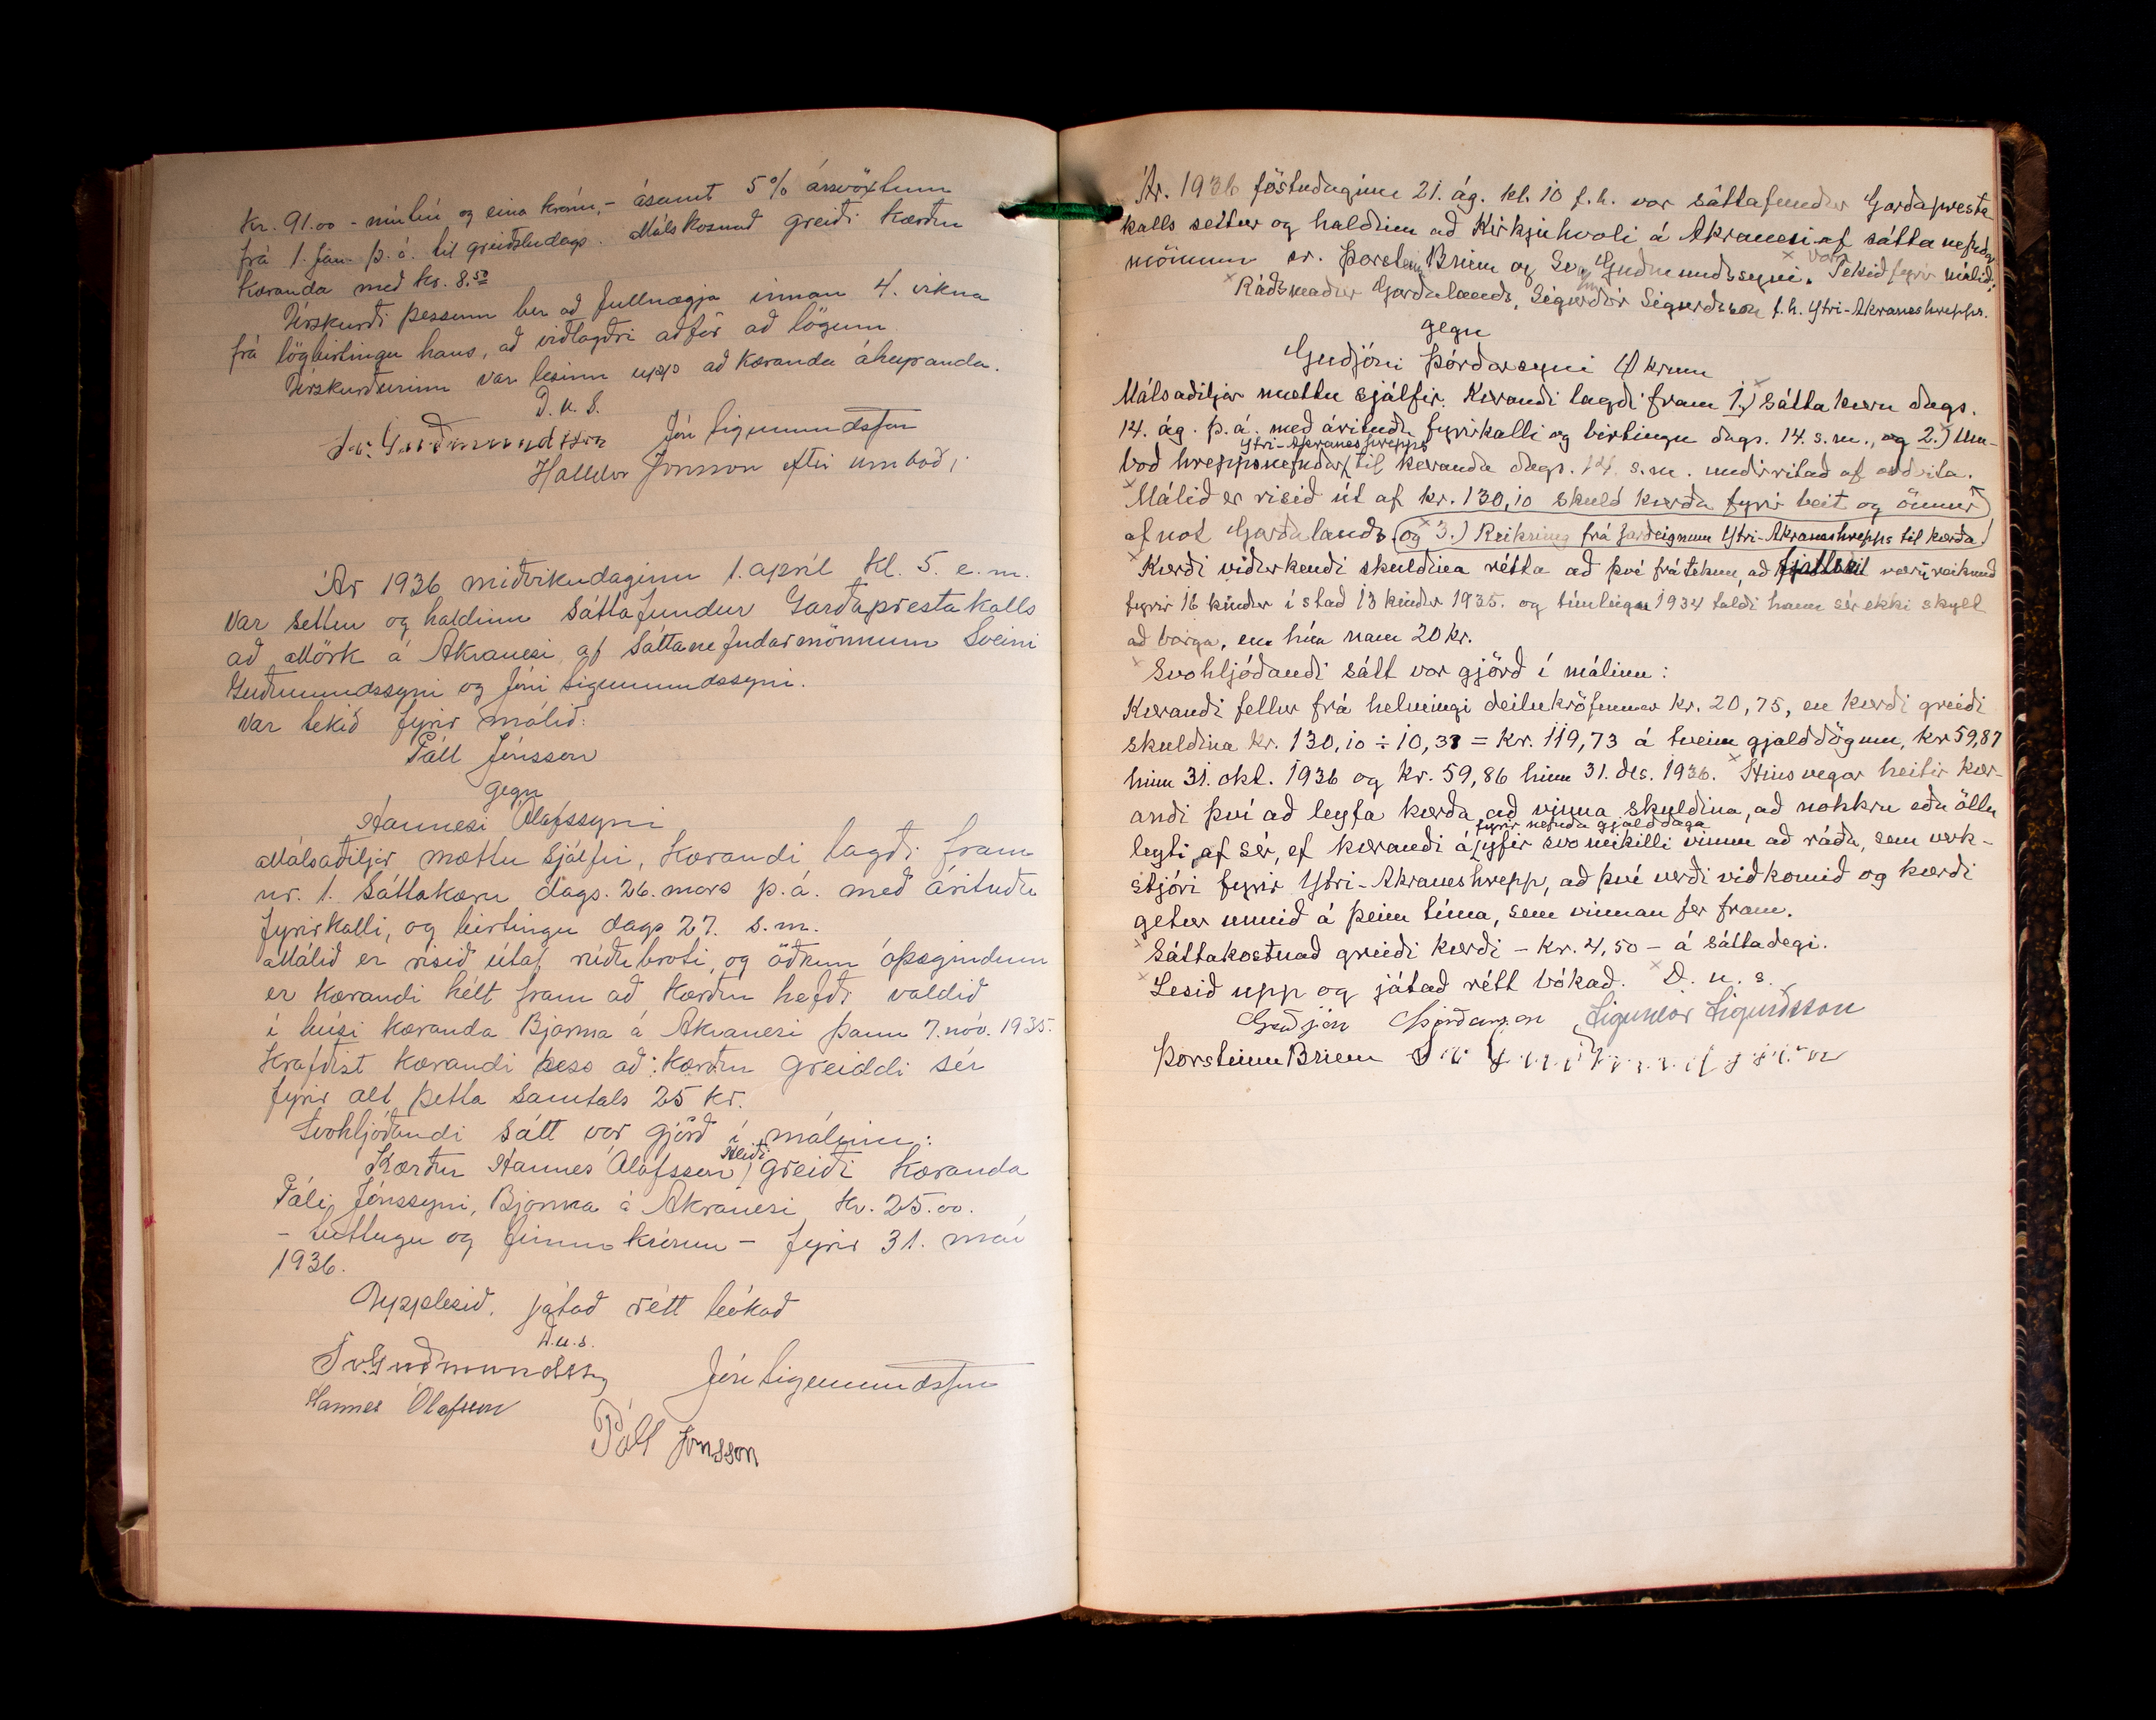 Kr. 91.00 - níutíu og eina krónu, - ásamt 5% ársvöxtum
frá 1. jan. þ. á. til greiðsludags. Málskosnað greiði kærðu
kæranda með kr. 8.50
Úrskurði þessum ber að fullnægja innan 4. vikna
frá lögbirtingu hans, að viðlagðri aðför að lögum.
Úrskurðurinn var lesinn upp að kæranda áheyranda.
D. u. S.
Sv. Guðmundsson Jón Sigmundsson
Halldór Jónsson eftir umboði
Ár 1936 miðvikudaginn 1. apríl kl. 5. e. m.
var settur og haldinn sáttafundur Garðaprestakalls
að Mörk á Akranesi, af sáttanefndarmönnum Sveini
Guðmundssyni og Jóni Sigmundssyni.
Var tekið fyrir málið:
Páll Jónsson
gegn
Hannesi Ólafssyni
Málsaðiljar mættu sjálfir, kærandi lagði fram
nr. 1. Sáttakæru dags. 26. mars þ. á. með árituðu
fyrirkalli, og birtingu dags 27. s.m.
Málið er risið útaf rúðubroti, og öðrum óþægindum
er kærandi hélt fram að kærðu hefði valdið
í húsi kæranda Bjarma á Akranesi þann 7. nóv. 1935.
Krafðist kærandi þess að: kærðu greiddi sér
fyrir alt þetta samtals 25 kr.
Svohljóðandi sátt var gjörð í málinu:
Kærðu Hannes Ólafsson, greiði kæranda
Páli Jónssyni, Bjarma á Akranesi kr. 25.00.
- tuttugu og fimm krónur - fyrir 31. maí
1936.
Upplesið, játað rétt bókað
D.u.s.
Sv. Guðmundsson Jón Sigmundsson
Hannes Ólafsson
Páll Jónsson
Ár. 1936 föstudaginn 21. ág. kl. 10 f.h. var sáttafundur Garðapresta-
kalls settur og haldinn að Kirkjuhvoli á Akranesi af sáttanefndar
mönnum sr. Þorsteini Briem og Sv. Guðmundssyni. Var Tekið fyrir málið:
Ráðsmaður Garðalands, Sigurður Sigurðsson f.h. Ytri-Akraneshrepps.
gegn
Guðjóni Þórðarsyni Ökrum
Málsaðiljar mættu sjálfir. Kærandi lagði fram 1.) Sáttakæru dags.
14. ág. þ.á. með árituðu fyrirkalli og birtingu dags. 14. s.m., og 2.) Um-
boð hreppsnefndar Ytri-Akraneshrepps til kæranda dags. 14. s.m. undirritað af oddvita.
Málið er risið út af kr. 130,10 skuld kærða fyrir beit og önnur
afnot Garðalands og 3.) Reikning frá jarðeignum Ytri-Akraneshrepps til kærða
Kærði viðurkendi skuldina rétta að því fráteknu, að væri reiknað
fyrir 16 kindur í stað 13 kindur 1935. og túnleigu 1934 taldi hann sér ekki skylt
að borga, en hún nam 20 kr.
Svohljóðandi sátt var gjörð í málinu:
Kærandi fellur frá helmingi deilukröfunnar kr. 20,75, en kærði greiði
skuldina kr. 130,10 ÷ 10,37 = kr. 119,73 á tveim gjalddögum, kr 59,87
hinn 31. okt. 1936 og kr. 59,86 hinn 31. des. 1936. Hins vegar heitir kær-
andi því að leyfa kærða að vinna skuldina, að nokkru eða öllu
leyti af sér, ef kærandi á fyrir nefnda gjalddaga yfir svo mikilli vinnu að ráða, sem verk-
stjóri fyrir Ytri-Akraneshrepp, að því verði viðkomið og kærði
getur unnið á þeim tíma, sem vinnan fer fram.
Sáttakostnað greiði kærði - kr. 4,50 - á sáttadegi.
Lesið upp og játað rétt bókað. D. u. s.
Guðjón Þórðarson Sigurður Sigurðsson
Þorsteinn Briem Sv Guðmundsson